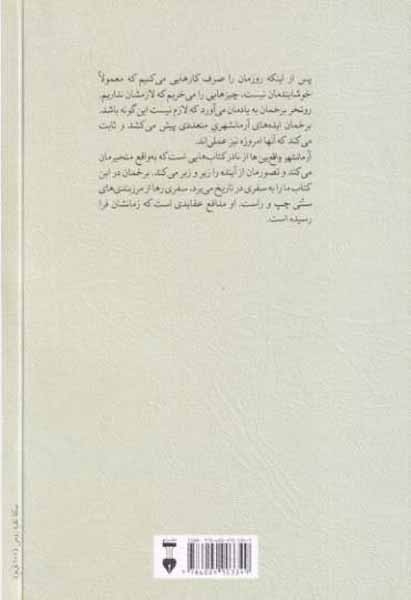 پس از اینکه روزمان را صرف کارهایی می‌کنیم که معمولاً
خوشایندمان نیست، چیزهایی را می‌خریم که لازمشان نداریم.
روتخر برخمان به یادمان می‌آورد که لازم نیست این‌گونه باشد.
برخمان ایده‌های آرمانشهری متعددی پیش می‌کشد و ثابت
می‌کند که آنها امروزه نیز عملی‌اند.
آرمانشهر واقع‌بین‌ها از نادر کتاب‌هایی است که به‌واقع متحیرمان
می‌کند و تصورمان از آینده را زیر و زبر می‌کند. برخمان در این
کتاب ما را به سفری در تاریخ می‌برد، سفری رها از مرزبندی‌های
سنّتی چپ و راست. او مدافع عقایدی است که زمانشان فرا
رسیده است.